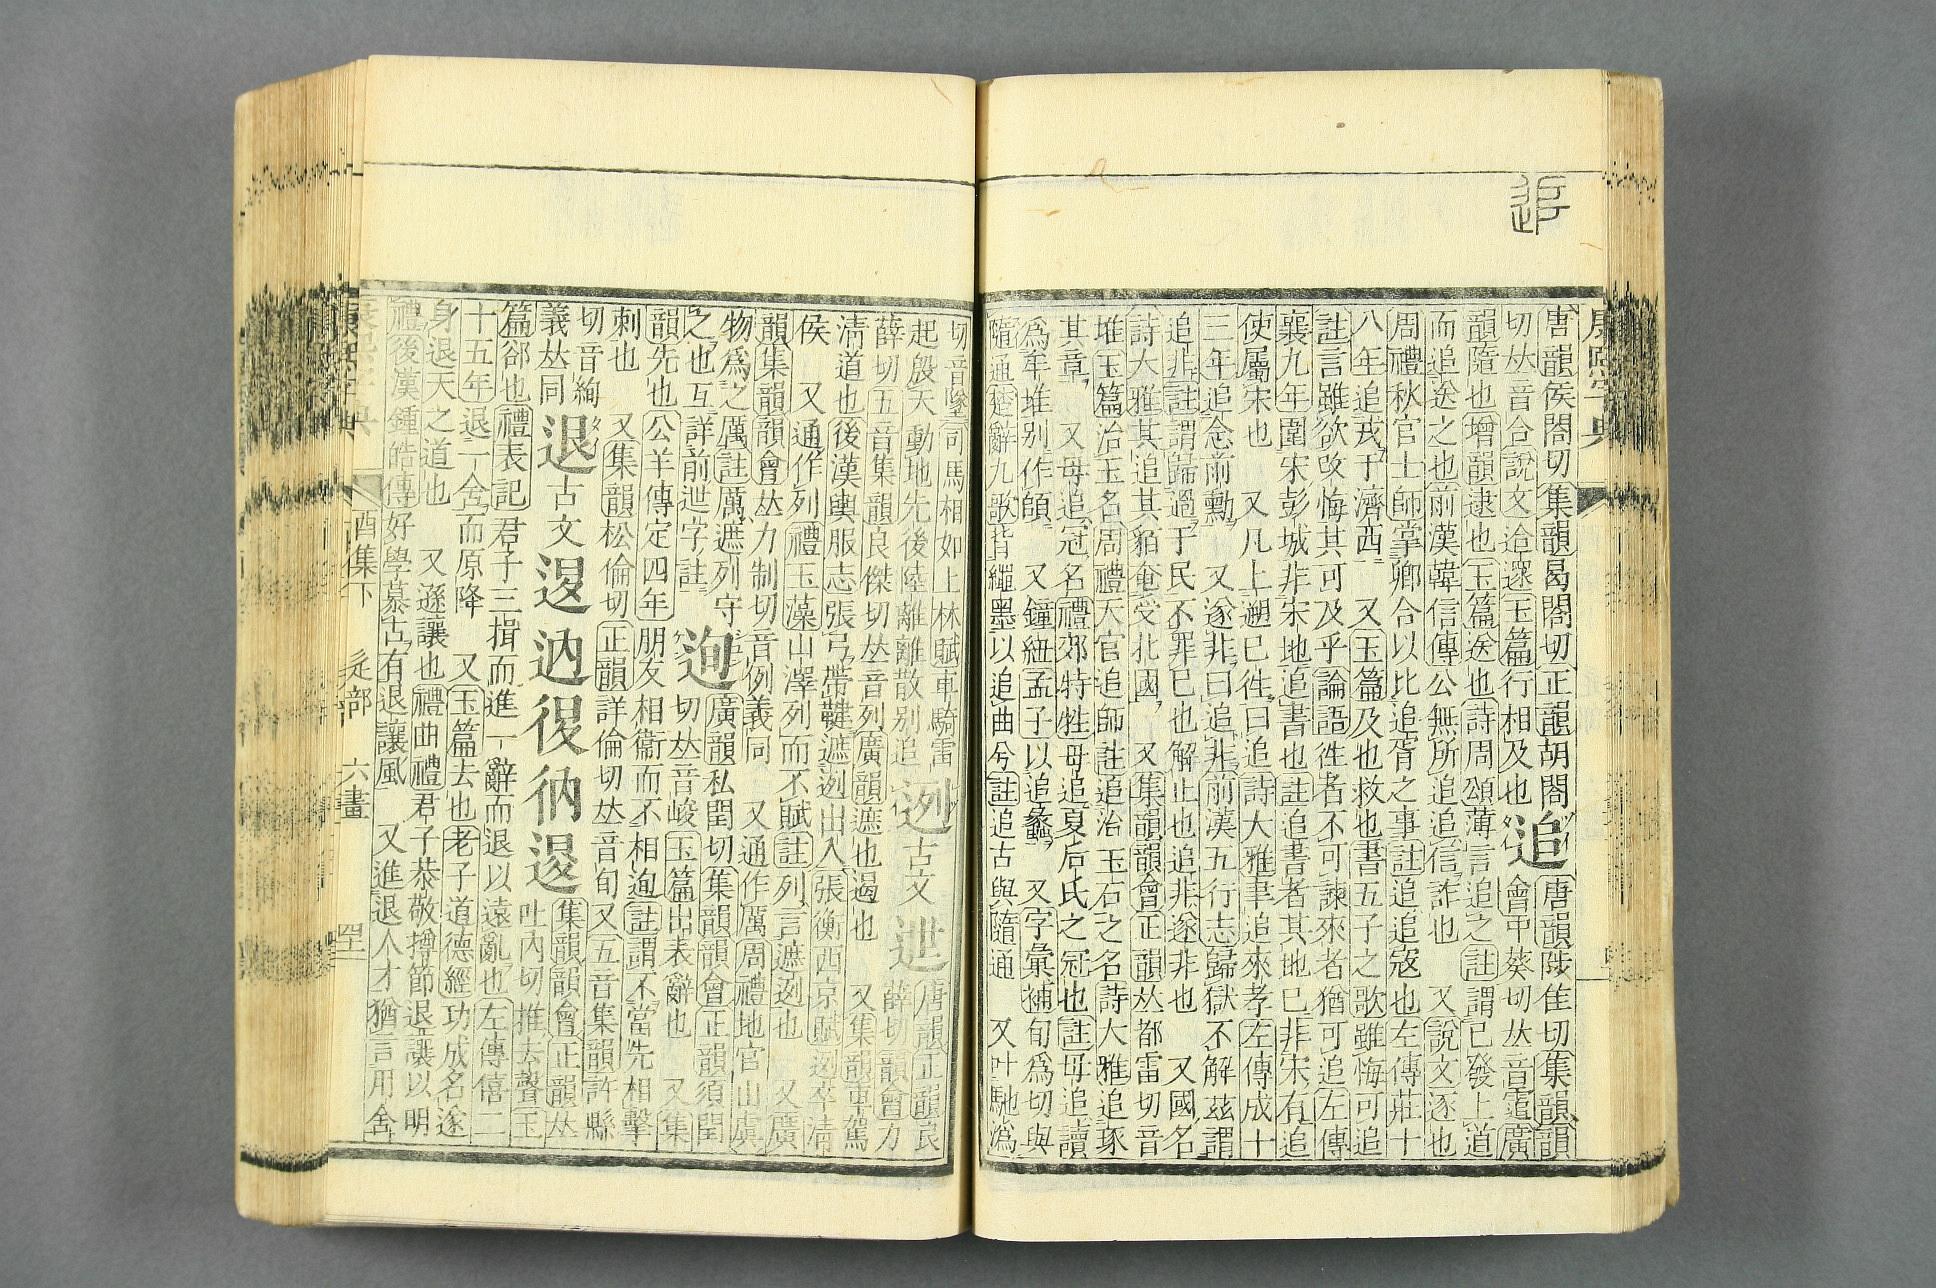 康熙字典
唐韻侯閤切集韻曷閤切正韻胡閤
切𠀤音合說文迨遝玉篇行相及也
追
唐韻陟隹切集韻韻
會中葵切𠀤音𩅰廣
韻隨也增韻逮也玉篇送也詩周頌薄言追之註謂已發上道
而追送之也前漢韓信傳公無所追追信詐也 又說文逐也
周禮秋官士師掌鄉合以比追胥之事註追追寇也左傳莊十
八年追戎于濟西 又玉篇及也救也書五子之歌雖悔可追
註言雖欲改悔其可及乎論語徃者不可諫來者猶可追左傳
襄九年圍宋彭城非宋地追書也註追書者其地已非宋有追
使屬宋也 又凡上遡已徃曰追詩大雅聿追來孝左傳成十
三年追念前勳 又逐非曰追非前漢五行志歸獄不解茲謂
追非註謂歸過于民不罪已也解止也追非遂非也 又國名
詩大雅其追其貊奄受北國 又集韻韻會正韻𠀤都雷切音
堆玉篇治玉名周禮天官追師註追治玉石之名詩大雅追琢
其章 又毋追冠名禮郊特牲毋追夏后氏之冠也註毋追讀
爲牟堆別作䫋 又鐘紐孟子以追蠡 又字彙補旬爲切與
隨通楚辭九歌背繩墨以追曲兮註追古與隨通 又叶馳爲
切音墜司馬相如上林賦車騎雷
起殷天動地先後陸離離散別追
迾
古文
迣
唐韻正韻良
薛切韻會力
薛切五音集韻良傑切𠀤音列廣韻遮也遏也 又集韻車駕
清道也後漢輿服志張弓帶鞬遮迾出入張衡西京賦迾卒清
侯 又通作列禮玉藻山澤列而不賦註列言遮迾也 又廣
韻集韻韻會𠀤力制切音例義同 又通作厲周禮地官山虞
物爲之厲註厲遮列守
之也互詳前迣字註
迿
廣韻私閏切集韻韻會正韻須閏
切𠀤音峻玉篇出表辭也 又集
韻先也公羊傳定四年朋友相衞而不相迿註謂不當先相擊
刺也 又集韻松倫切正韻詳倫切𠀤音旬又五音集韻許縣
切音絢
義𠀤同
退
古文
𨓤
𨒥
㣤
㣕
𨓤
集韻韻會正韻𠀤
吐內切推去聲玉
篇郤也禮表記君子三揖而進一辭而退以遠亂也左傳僖二
十五年退一舍而原降 又玉篇去也老子道德經功成名遂
身退天之道也 又遜讓也禮曲禮君子恭敬撙節退讓以明
禮後漢鍾皓傳好學慕古有退讓風 又進退人才猶言用舍
康熙字典
酉集下
辵部
六畫